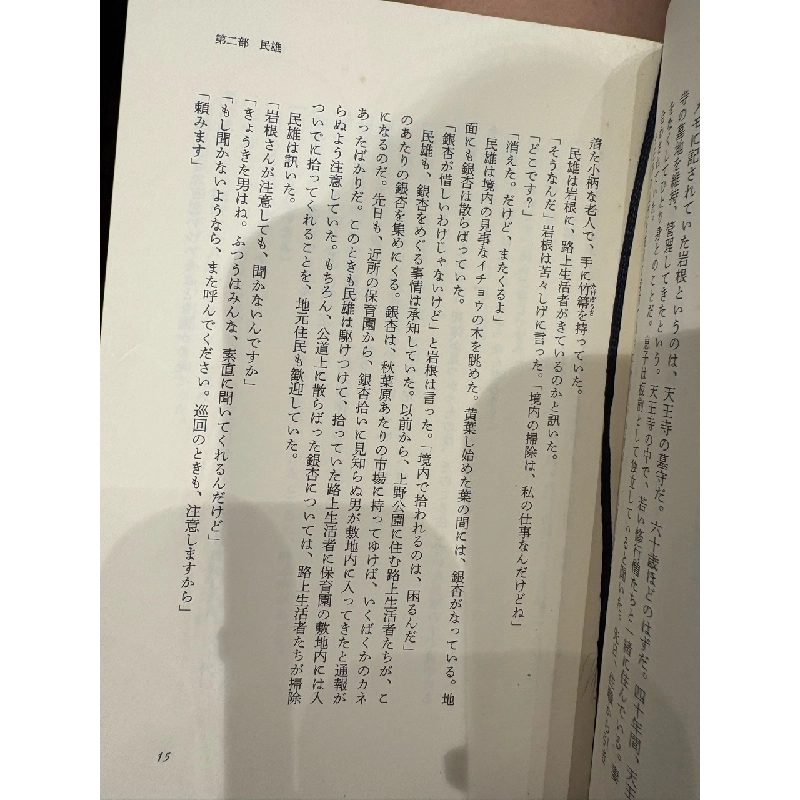 メモに記されていた岩根というのは、天王寺の墓守だ。六十歳ほどのはずだ。四十年間、天王
寺の墓地を維持、管理してきたという。天王寺の中で、若い修行僧たちと一緒に住んでいる。妻
第二部　民雄
落た小柄な老人で、手に竹箒を持っていた。
民雄は岩根に、路上生活者がきているのかと訊いた。
「そうなんだ」岩根は苦々しげに言った。「境内の掃除は、私の仕事なんだけどね」
「どこです？」
「消えた。だけど、またくるよ」
民雄は境内の見事なイチョウの木を眺めた。黄葉し始めた葉の間には、銀杏がなっている。地
面にも銀杏は散らばっていた。
「銀杏が惜しいわけじゃないけど」と岩根は言った。「境内で拾われるのは、困るんだ」
民雄も、銀杏をめぐる事情は承知していた。以前から、上野公園に住む路上生活者たちが、こ
のあたりの銀杏を集めにくる。銀杏は、秋葉原あたりの市場に持ってゆけば、いくばくかのカネ
になるのだ。先日も、近所の保育園から、銀杏拾いに見知らぬ男が敷地内に入ってきたと通報が
あったばかりだ。このときも民雄は駆けつけて、拾っていた路上生活者に保育園の敷地内には入
らぬよう注意していた。もちろん、公道上に散らばった銀杏については、路上生活者たちが掃除
ついでに拾ってくれることを、地元住民も歓迎していた。
民雄は訊いた。
「岩根さんが注意しても、聞かないんですか」
「きょうきた男はね。ふつうはみんな、素直に聞いてくれるんだけど」
「もし聞かないようなら、また呼んでください。巡回のときも、注意しますから」
「頼みます」
15